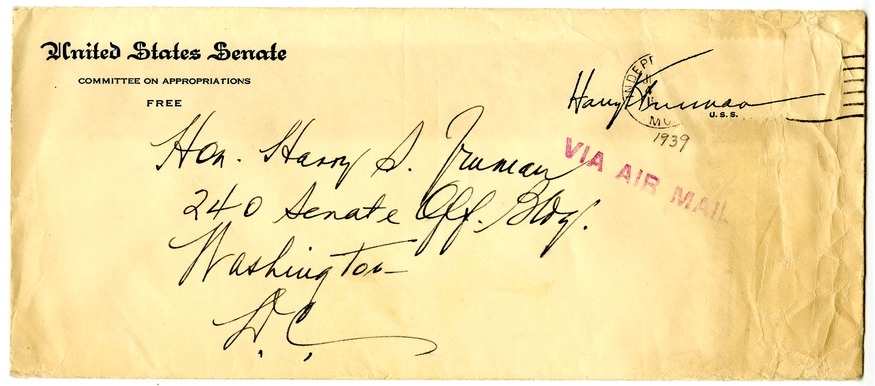 United States Senate
COMMITTEE ON APPROPRIATIONS
FREE
Harry S Truman
U.S.S.
INDEP
MO
1939
VIA AIR MAIL
Hon. Harry S. Truman
240 Senate Off. Bldg.
Washington
D.C.